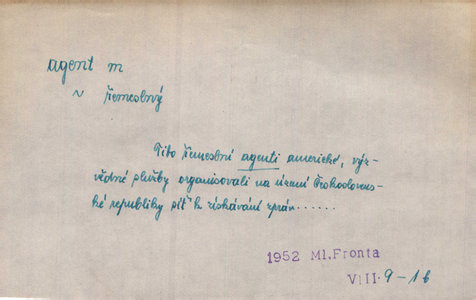 agent m
~ řemeslný
Tito řemeslní agenti americké, výz-
vědné služby organisovali na území Českosloven-
ské republiky síť k získávání zpráv......
1952 Ml. Fronta
VIII. 9-1b